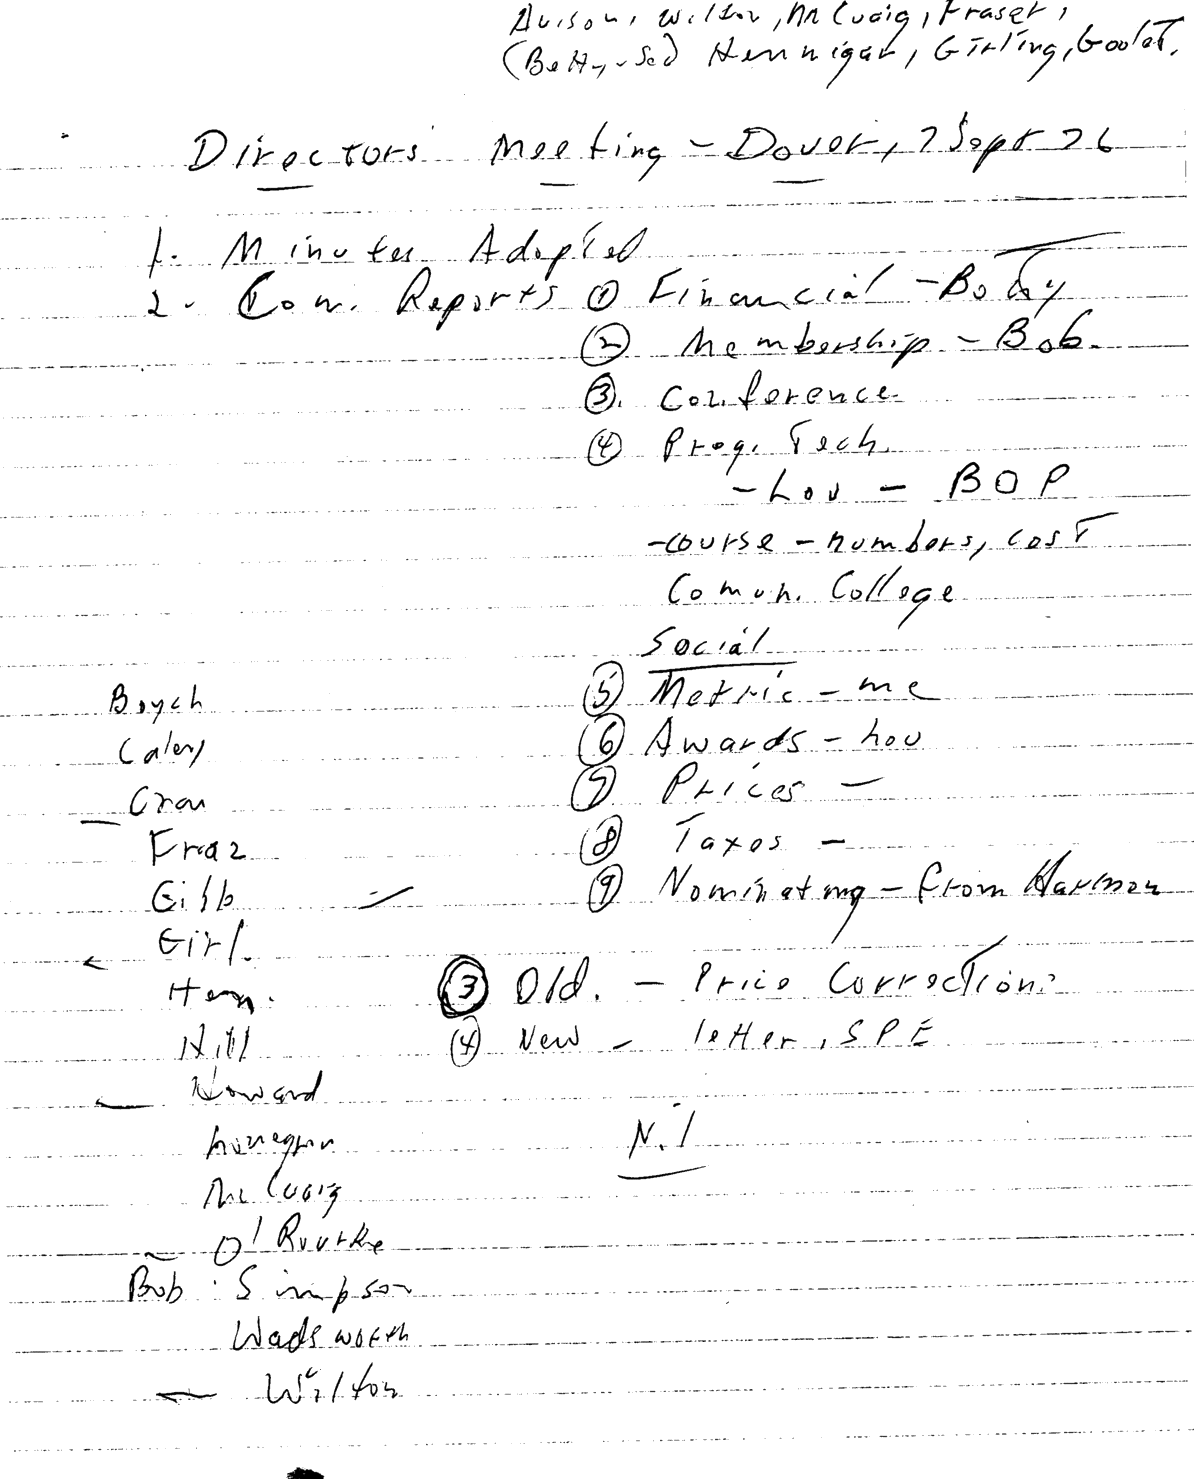 Avison, Wilton, McCuaig, Fraser,
(Betty-Sec) Hennigar, Girling, Goulet.
Directors Meeting - Dover, 7 Sept 76
1. Minutes Adopted
2. Com. Reports ① Financial - Body
② Membership - Bob.
③. Conference
④ Prog. Tech.
- Lou - BOP
- course - numbers, cost
Comun. College
Social
⑤ Metric - me
⑥ Awards - Lou
⑦ Prices -
⑧ Taxes -
⑨ Nominating - from Harmon
③ Old. - Price Corrections
④ New - letter, SPE
N.1
Boych
Calery
Cran
Fraz
Gibb
Girl.
Henn.
Hill
Howard
Lonegan
McCuaig
O'Rourke
Bob : Simpson
Wadsworth
Wilton